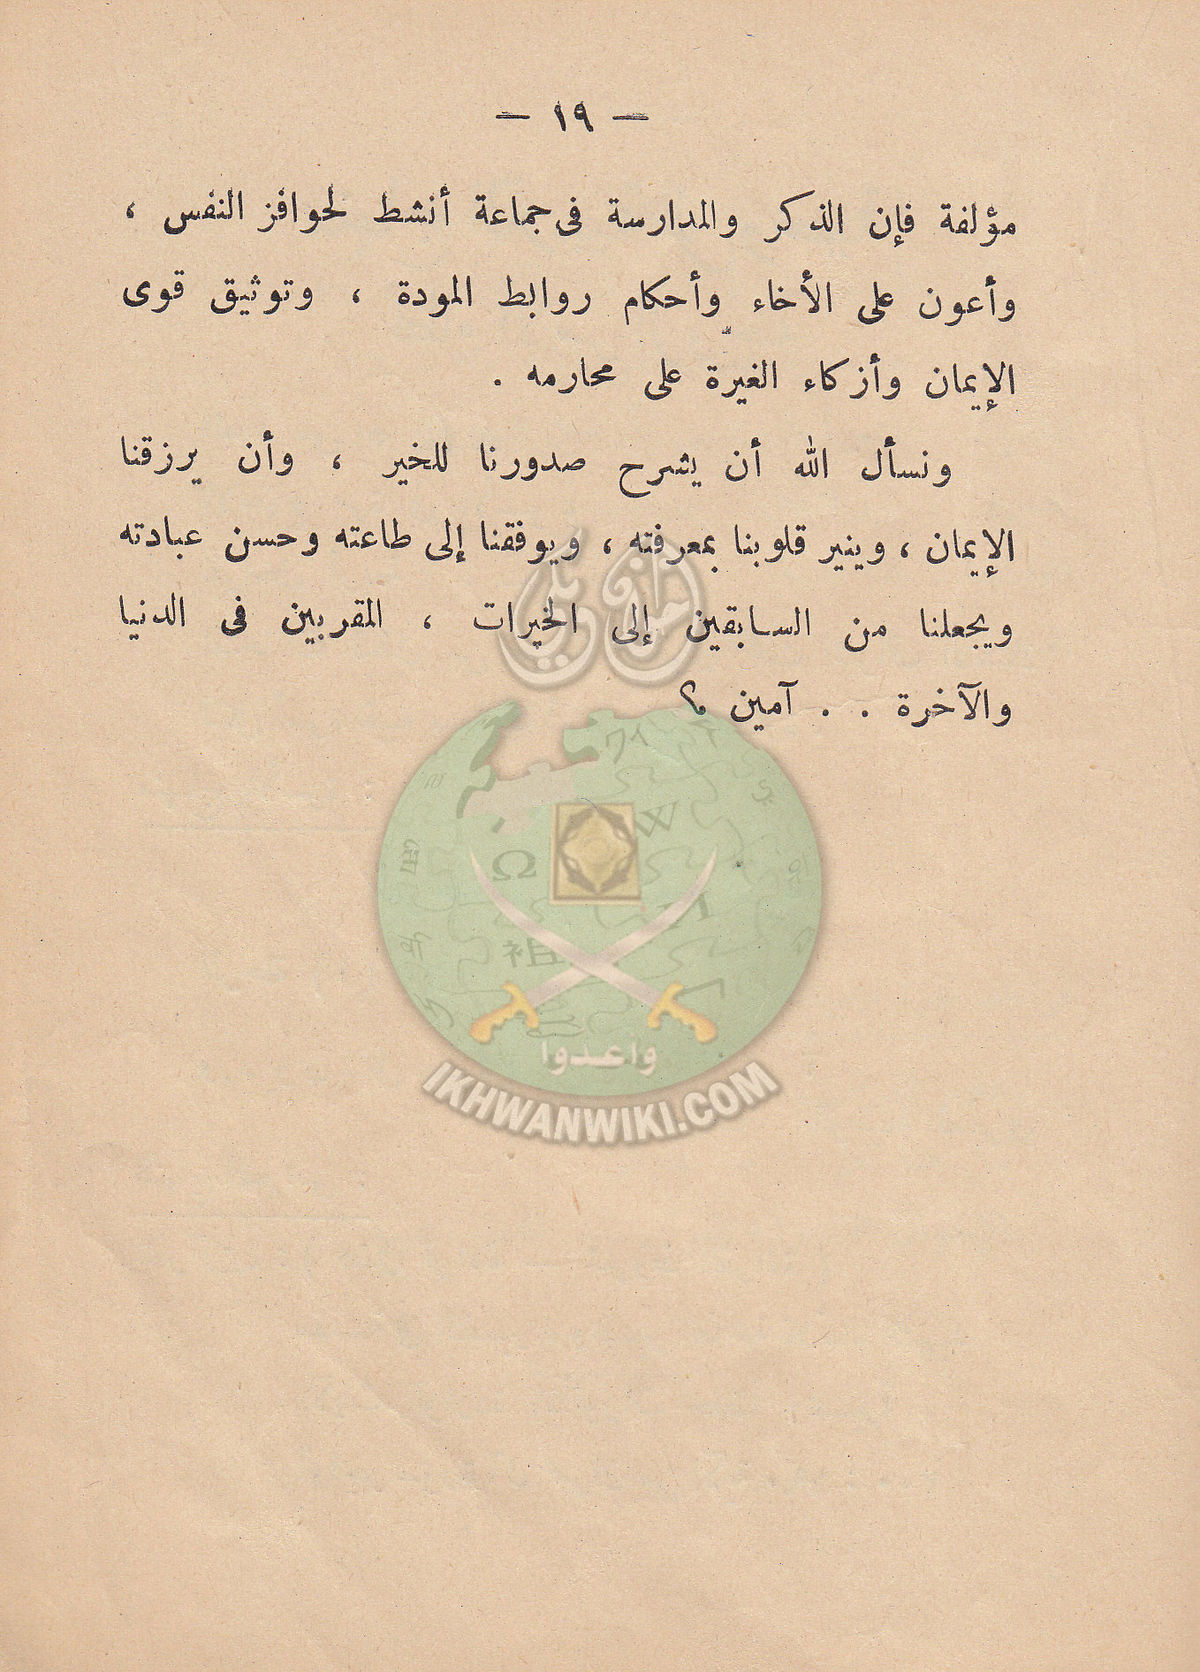 — ١٩ —
مؤلفة فإن الذكر والمدارسة فى جماعة أنشط لحوافز النفس ،
وأعون على الأخاء وأحكام روابط المودة ، وتوثيق قوى
الإيمان وأزكاء الغيرة على محارمه .
ونسأل الله أن يشرح صدورنا للخير ، وأن يرزقنا
الإيمان ، وينير قلوبنا بمعرفته ، ويوفقنا إلى طاعته وحسن عبادته
ويجعلنا من السابقين إلى الخيرات ، المقربين فى الدنيا
والآخرة . . آمين ؟
W
Ω
И
祖
واعدوا
IKHWANWIKI.COM